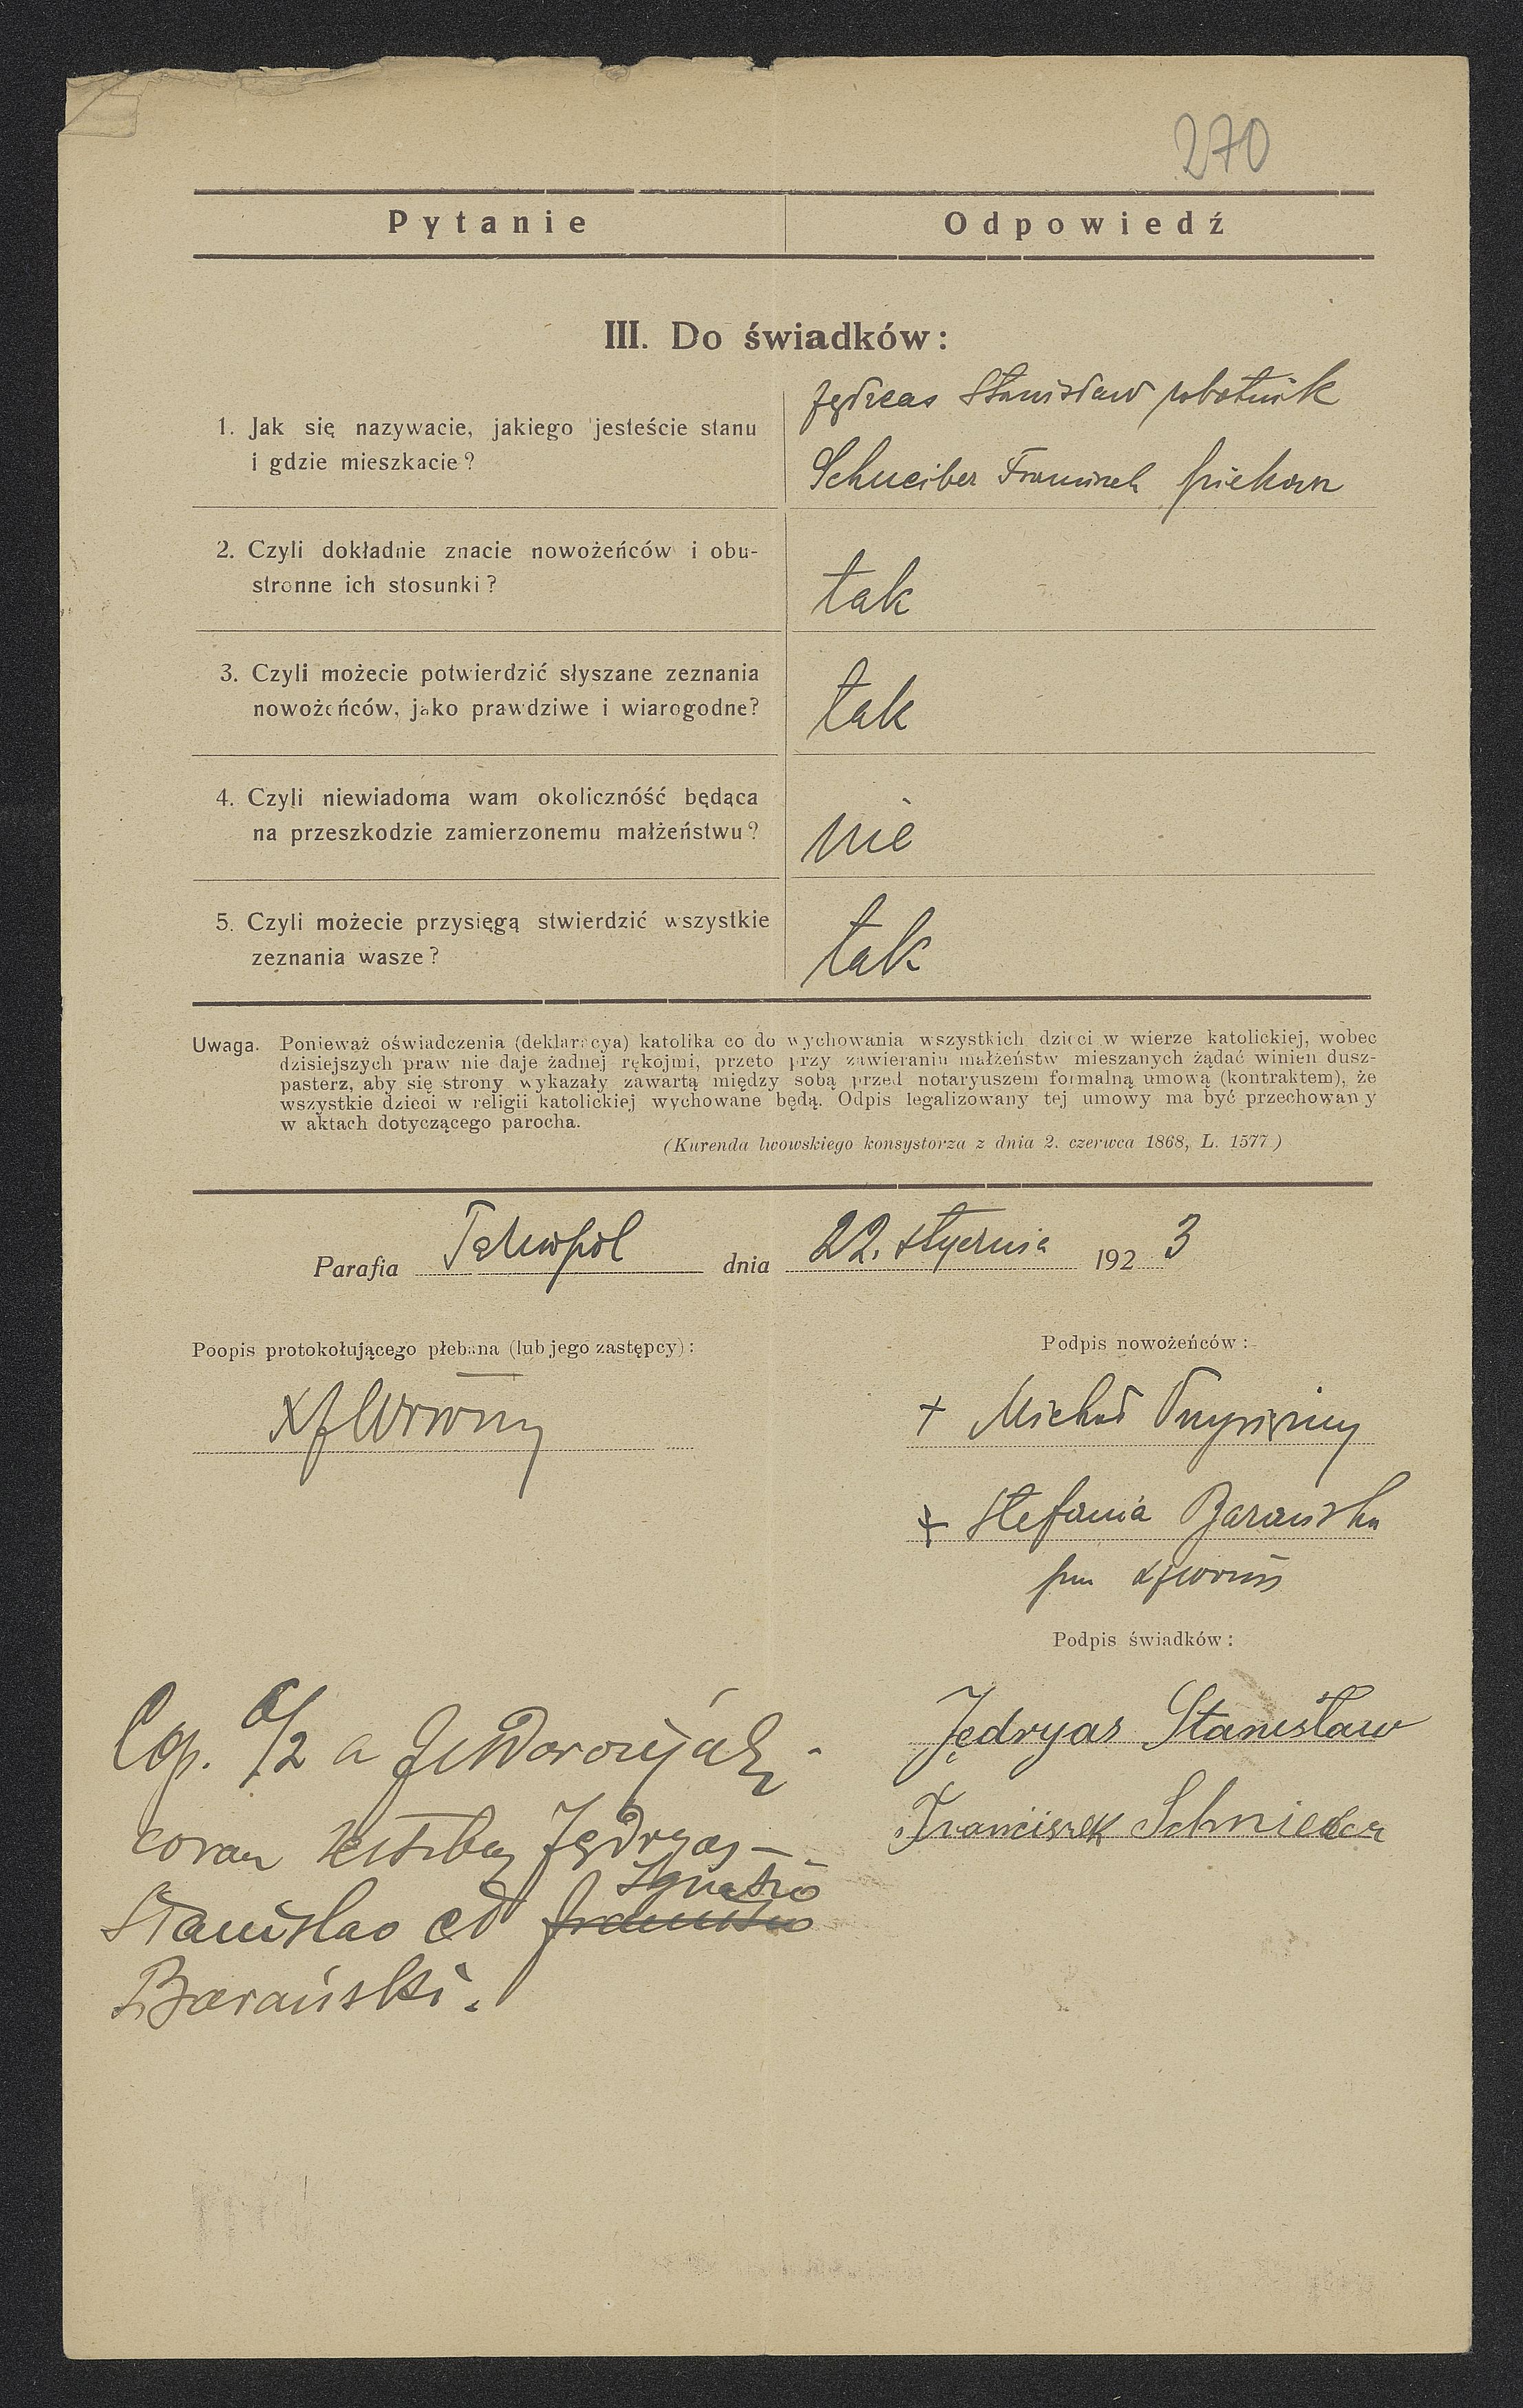 270
Pytanie Odpowiedź
III. Do świadków:
1. Jak się nazywacie, jakiego jesteście stanu
i gdzie mieszkacie?
Stanisław robotnik
Schneiber Franciszek piekarz
2. Czyli dokładnie znacie nowożeńców i obu-
stronne ich stosunki?
tak
3. Czyli możecie potwierdzić słyszane zeznania
nowożeńców, jako prawdziwe i wiarogodne?
tak
4. Czyli niewiadoma wam okolicznóść będąca
na przeszkodzie zamierzonemu małżeństwu?
nie
5. Czyli możecie przysięgą stwierdzić wszystkie
zeznania wasze?
tak
Uwaga. Ponieważ oświadczenia (deklaracya) katolika co do wychowania wszystkich dzieci w wierze katolickiej, wobec
dzisiejszych praw nie daje żadnej rękojmi, przeto przy zawieraniu małżeństw mieszanych żądać winien dusz-
pasterz, aby się strony wykazały zawartą między sobą przed notaryuszem formalną umową (kontraktem), że
wszystkie dzieci w religii katolickiej wychowane będą. Odpis legalizowany tej umowy ma być przechowany
w aktach dotyczącego parocha.
(Kurenda lwowskiego konsystorza z dnia 2. czerwca 1868, L. 1577)
Parafia Tarnopol dnia 22. stycznia 1923
Poopis protokołującego plebana (lub jego zastępcy):
Podpis nowożeńców:
+ Michał
+ Stefania Barańska
Podpis świadków:
Jędryas Stanisław
Franciszek Schnieber
Cop. 6/2 a
coram testibus Jędryas
Ignatio
Stanislao et
Barański.